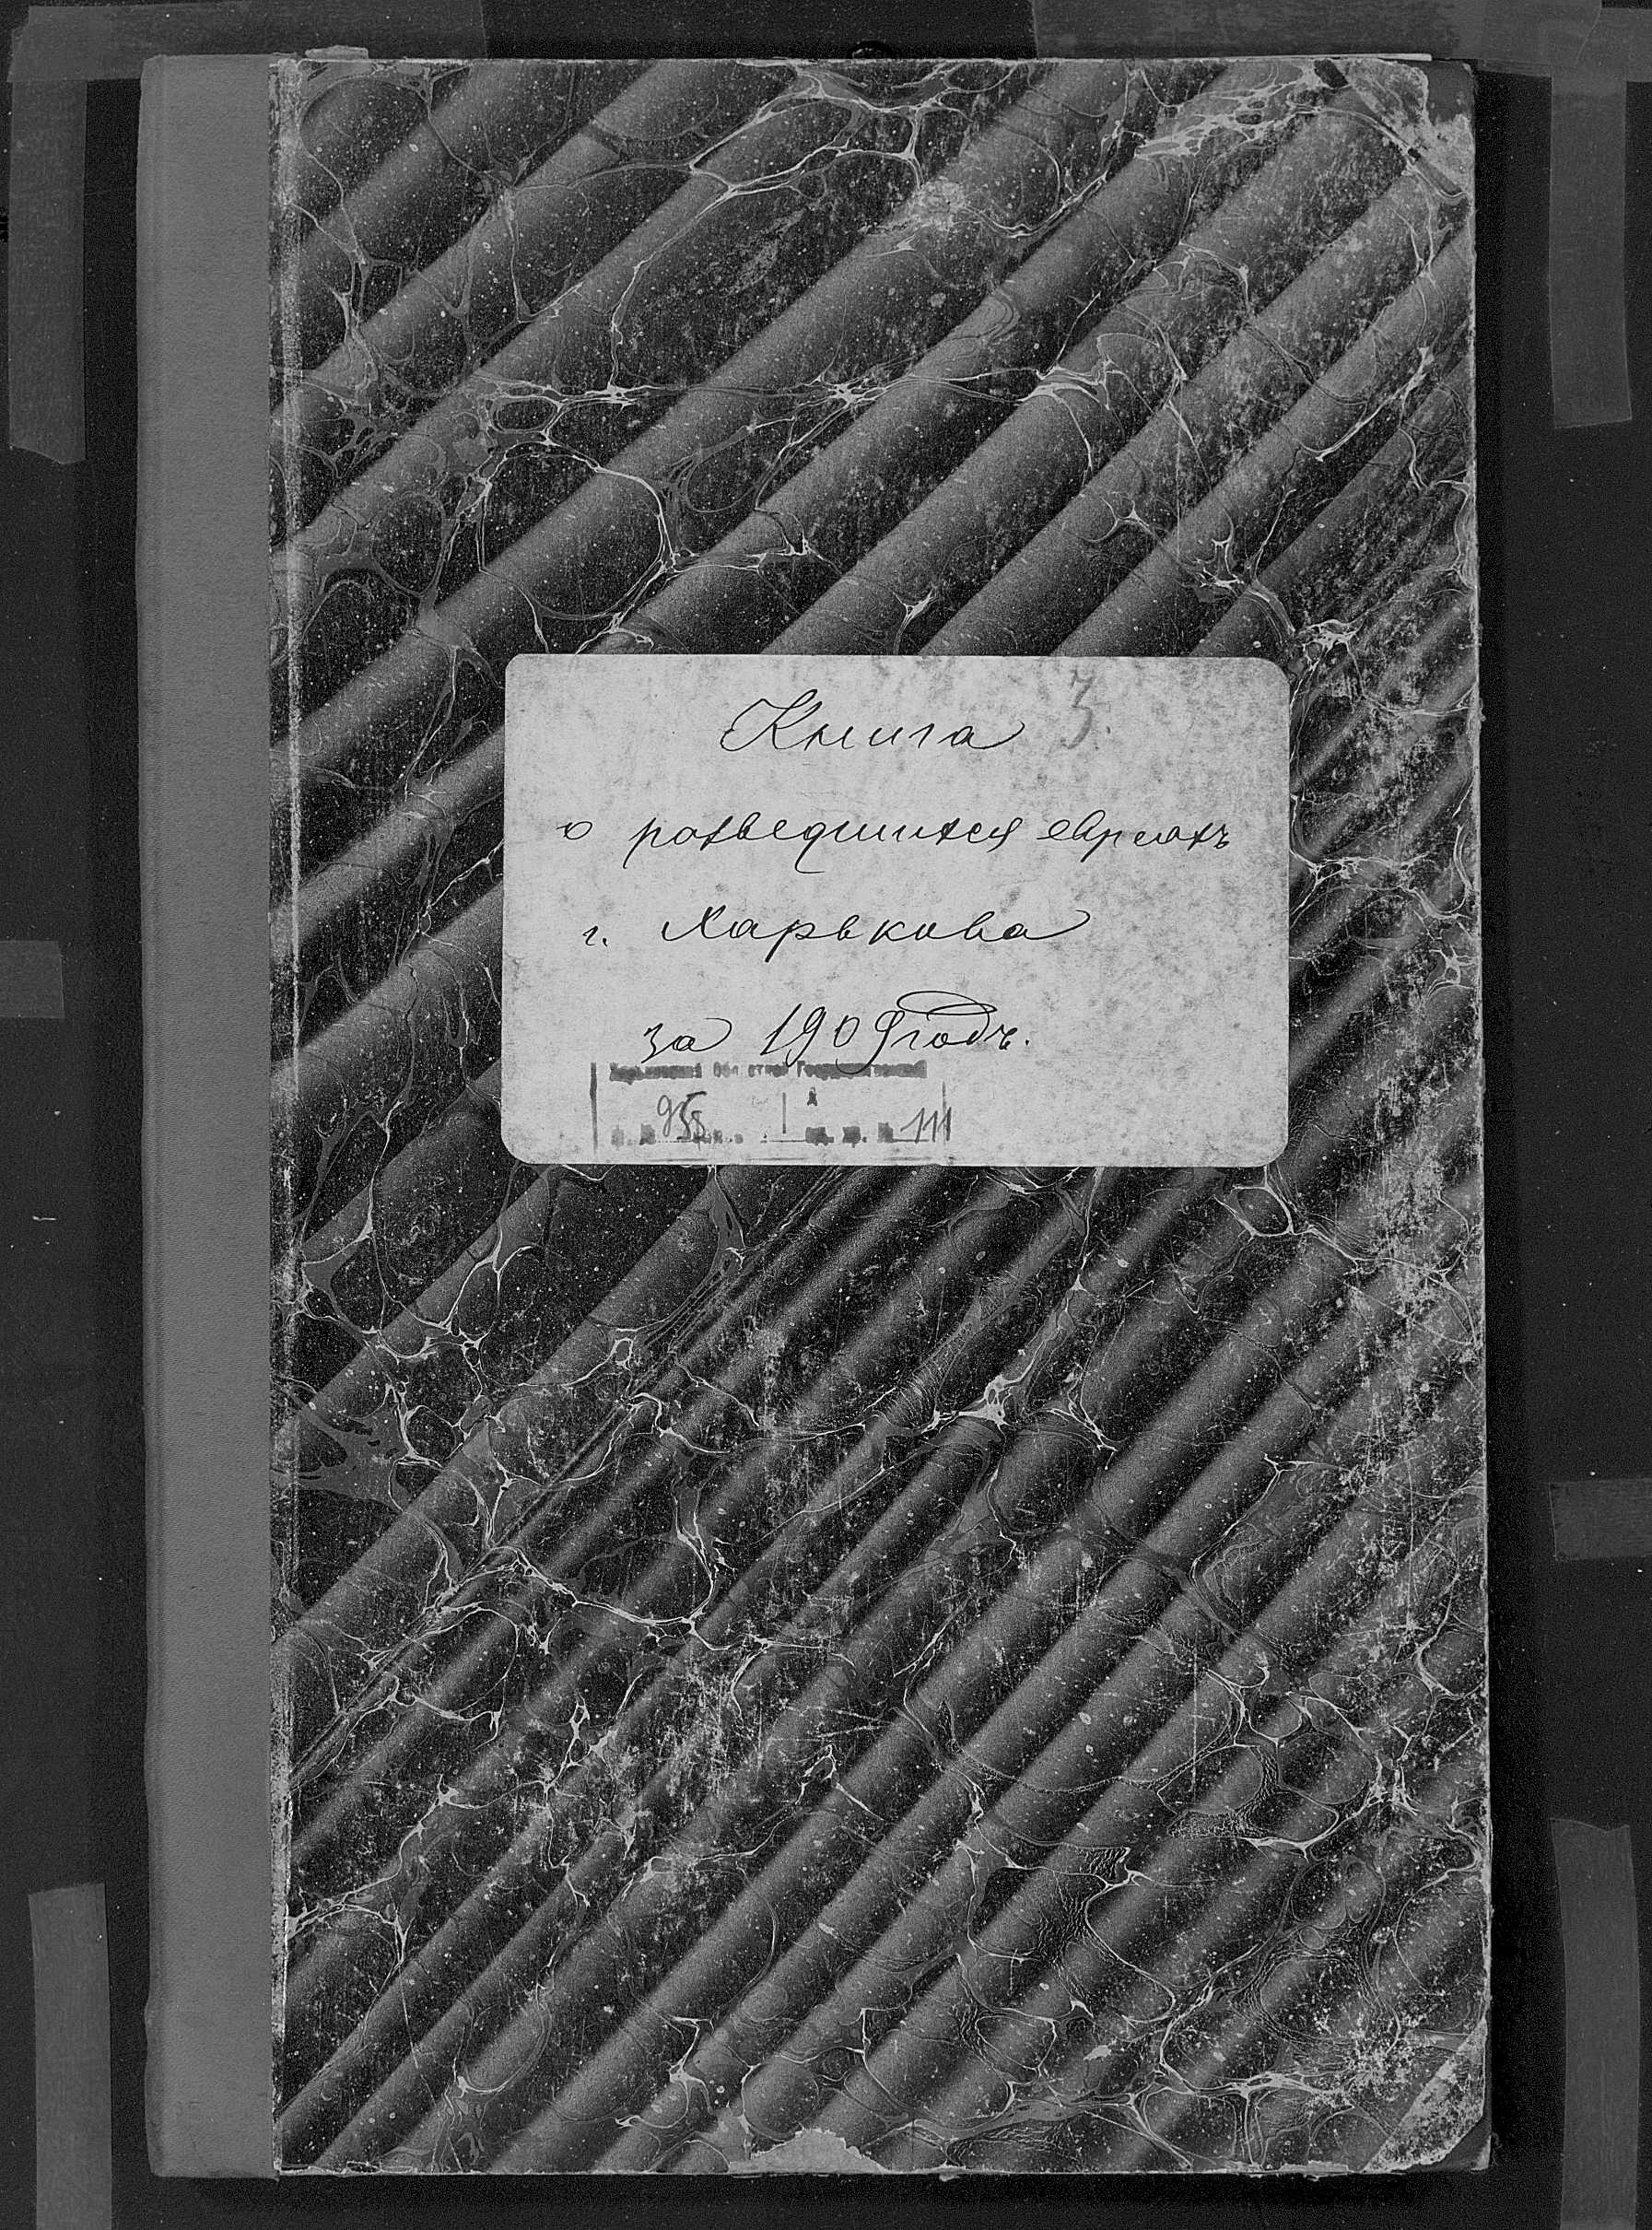 Книга 3.
о разведшихся евреяхъ
г. Харькова
за 1909 годъ.
Харьковский Областной Государственный
955 1 111